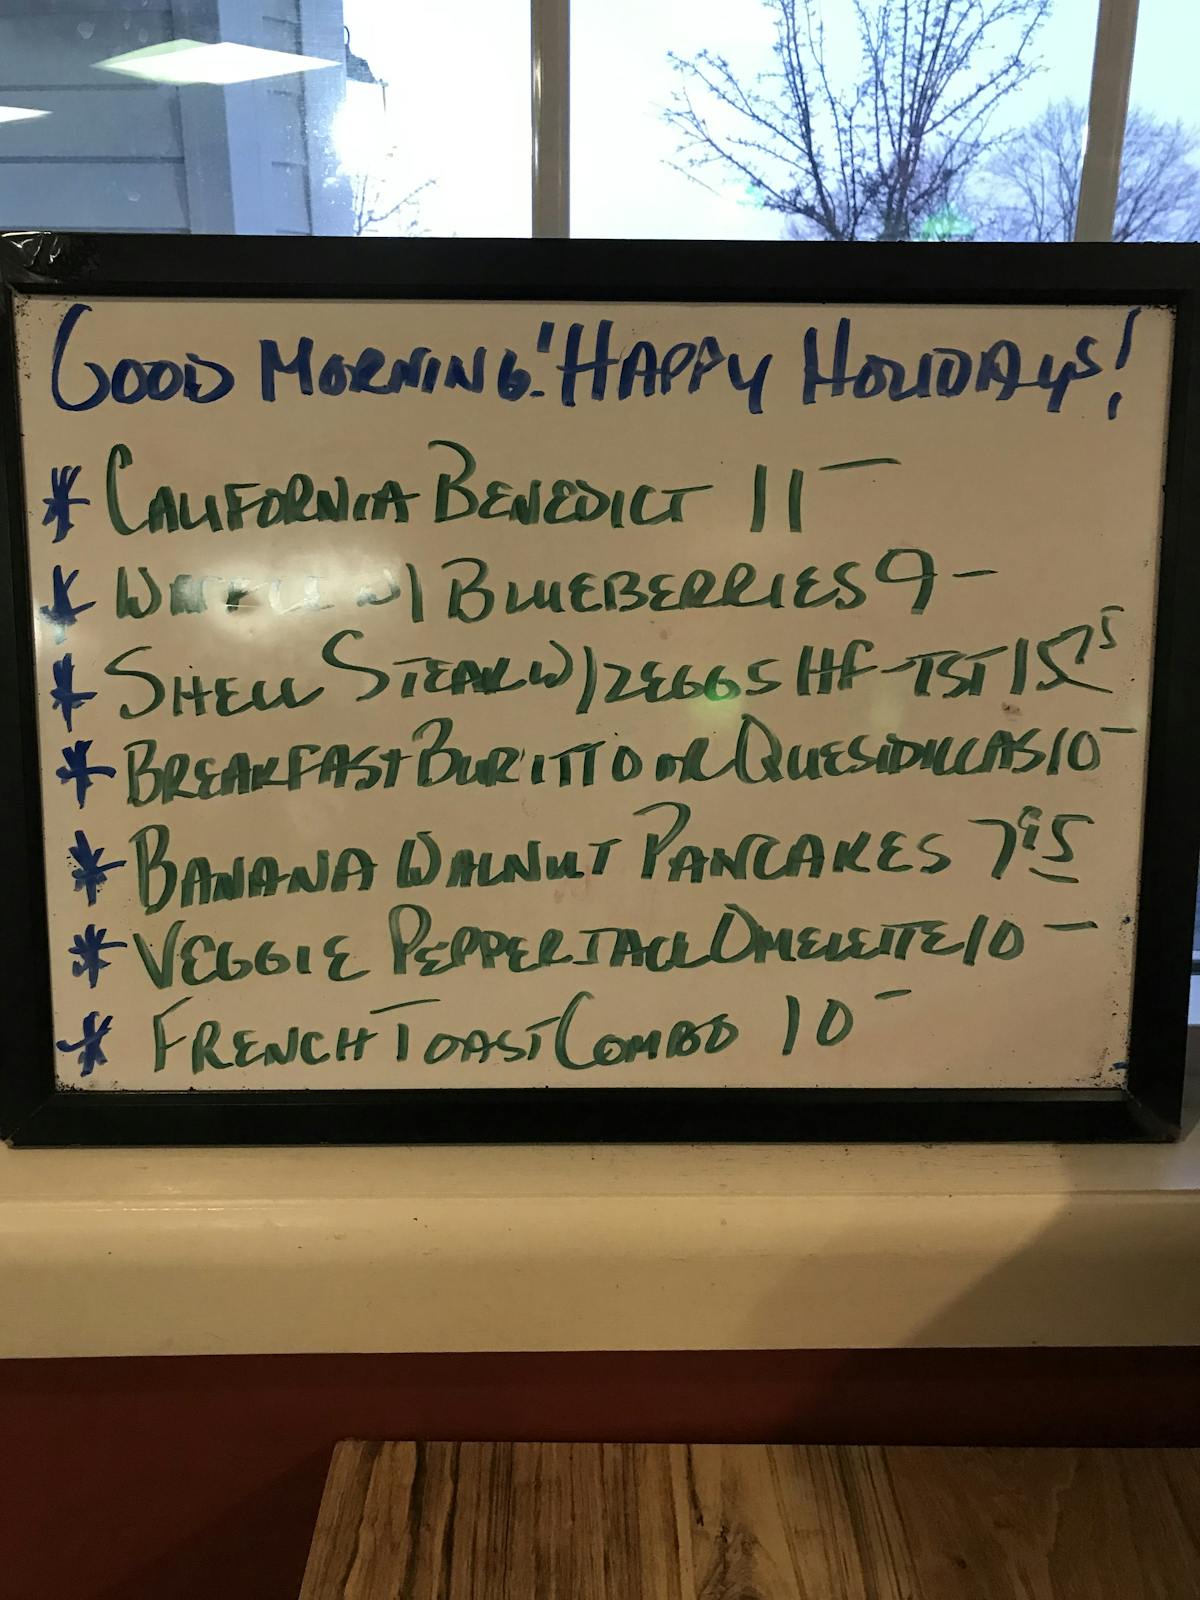 GOOD MORNING! HAPPY HOLIDAYS!
* CALIFORNIA BENEDICT 11 —
* WAFFLE W/ BLUEBERRIES 9 —
* SHELL STEAK W/ 2 EGGS HF - TST 15 75
* BREAKFAST BURITTO OR QUESIDILLAS 10 —
* BANANA WALNUT PANCAKES 7 95
* VEGGIE PEPPERJACK OMELETTE 10 —
* FRENCH TOAST COMBO 10 —